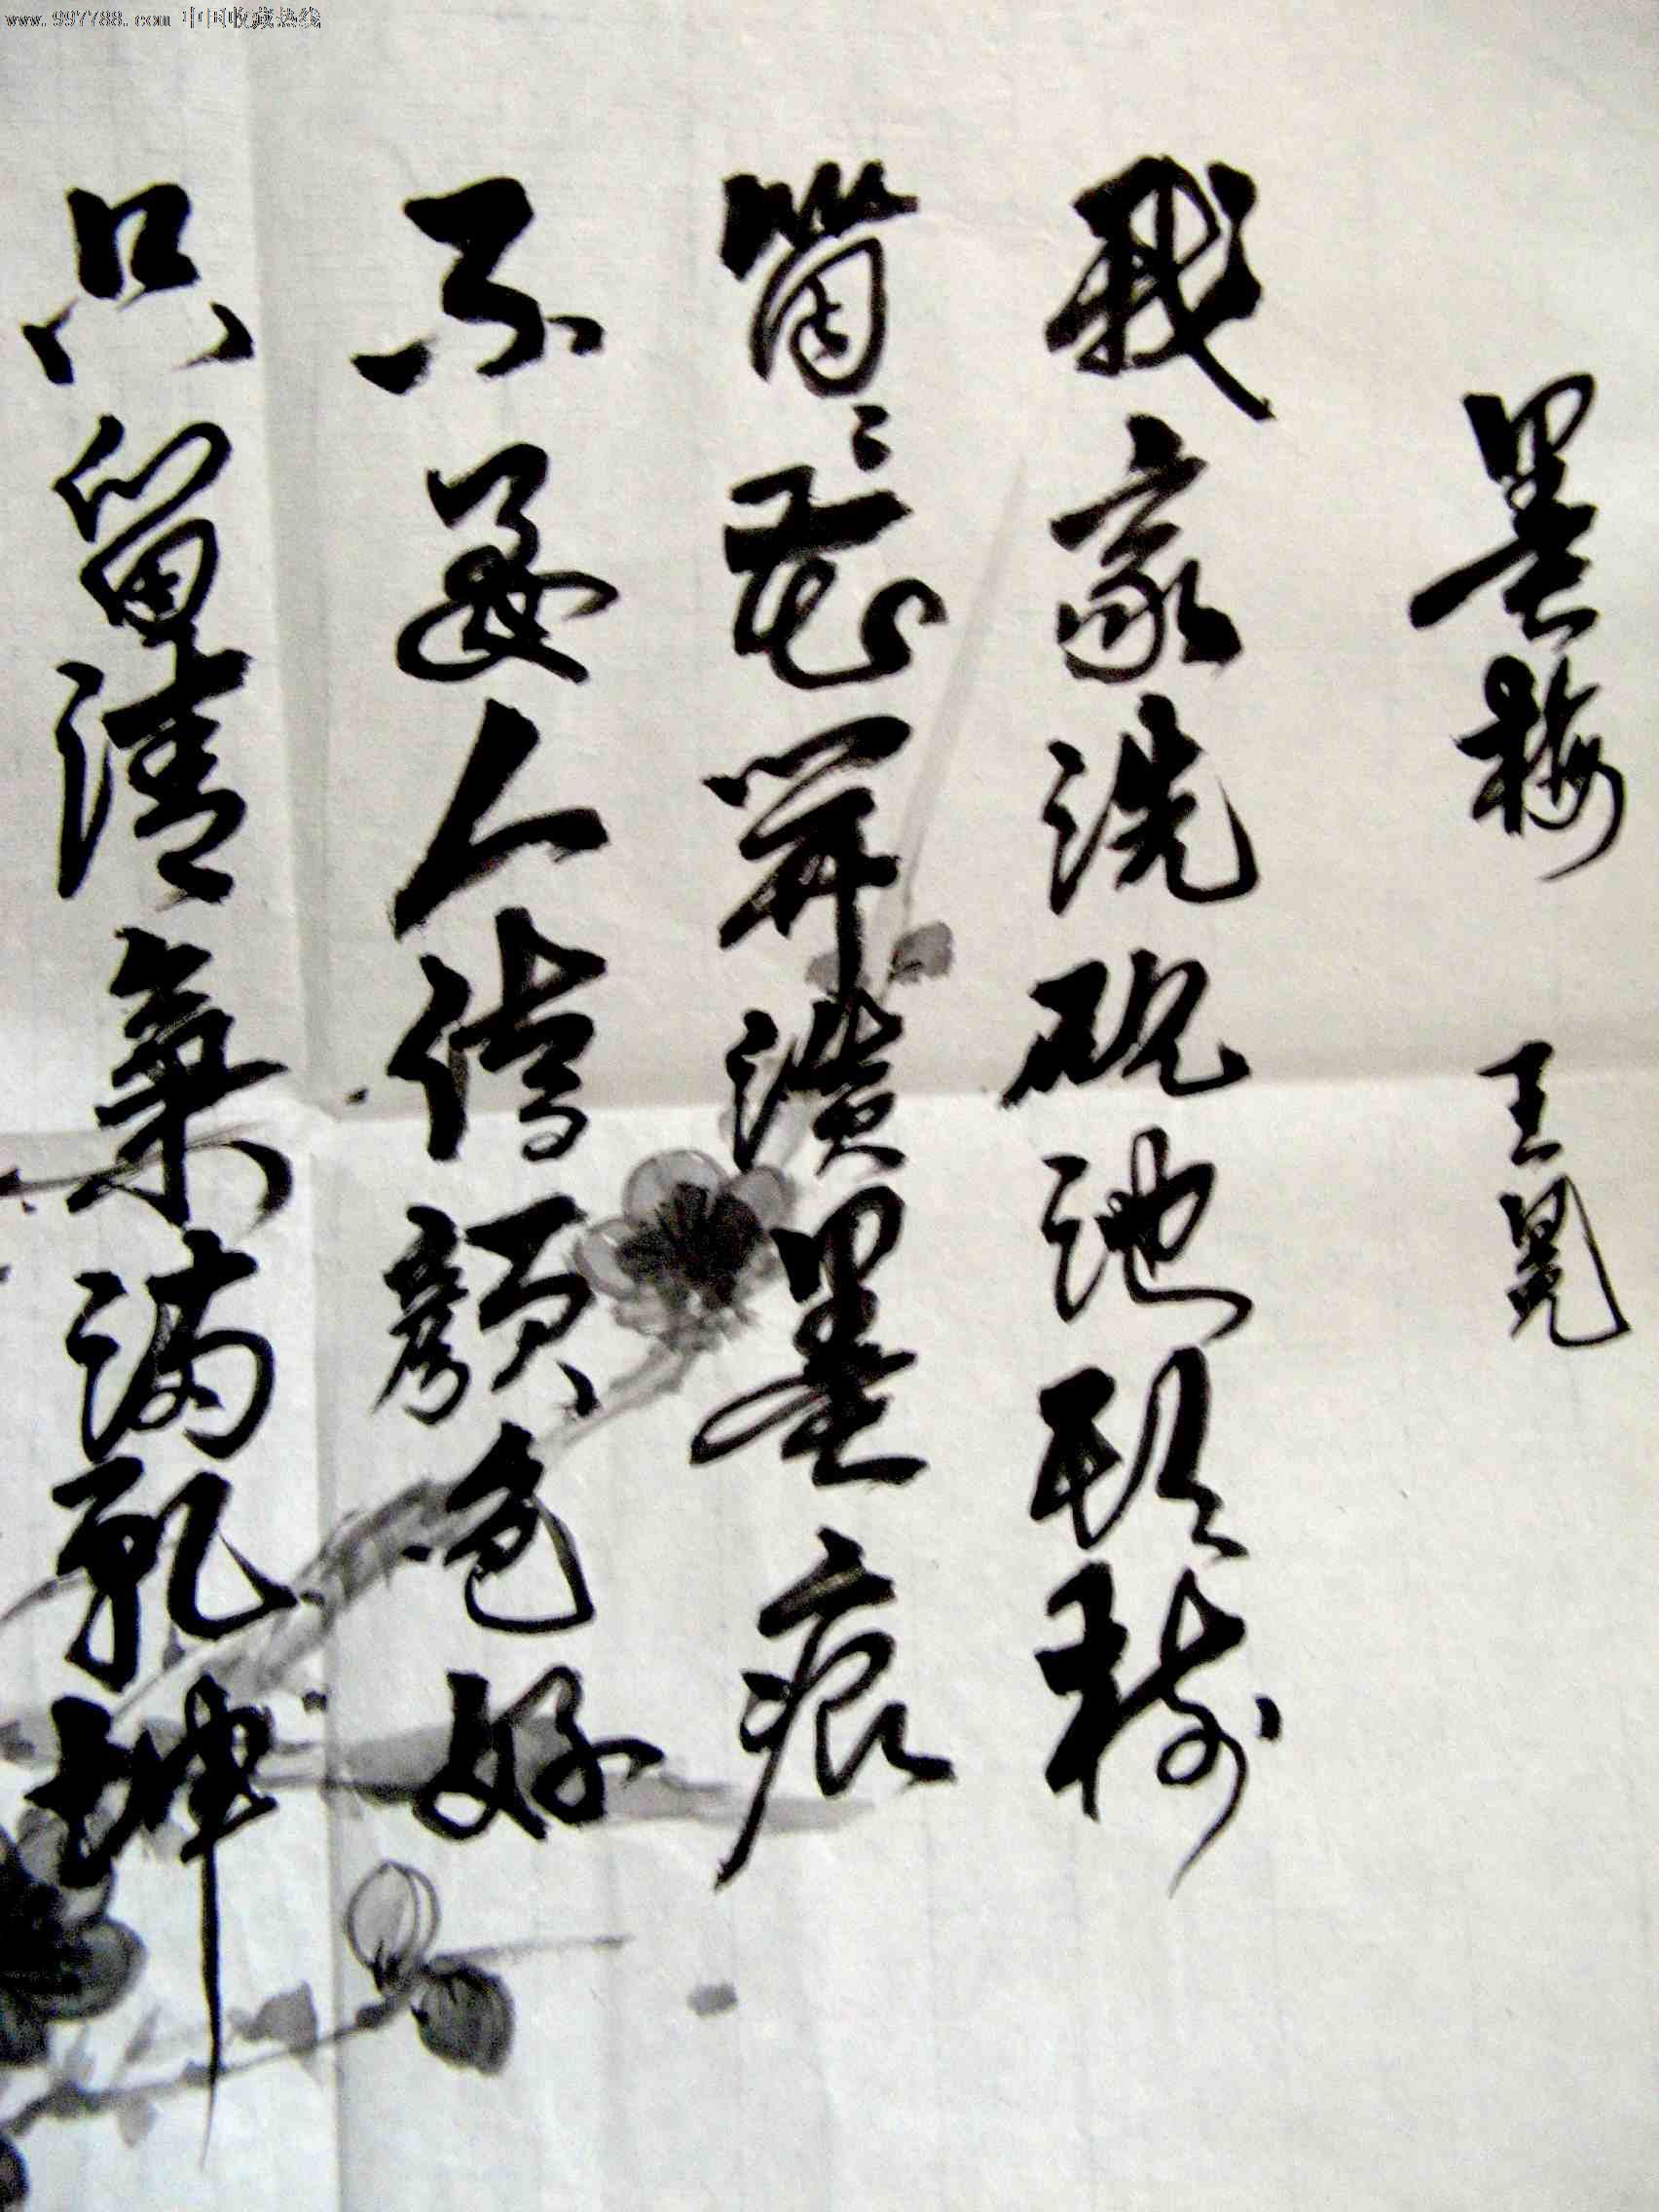 www.997788.com 中国收藏热线
墨梅 王冕
我家洗硯池頭樹
箇々花開淡墨痕
不要人誇顏色好
只留清氣滿乾坤